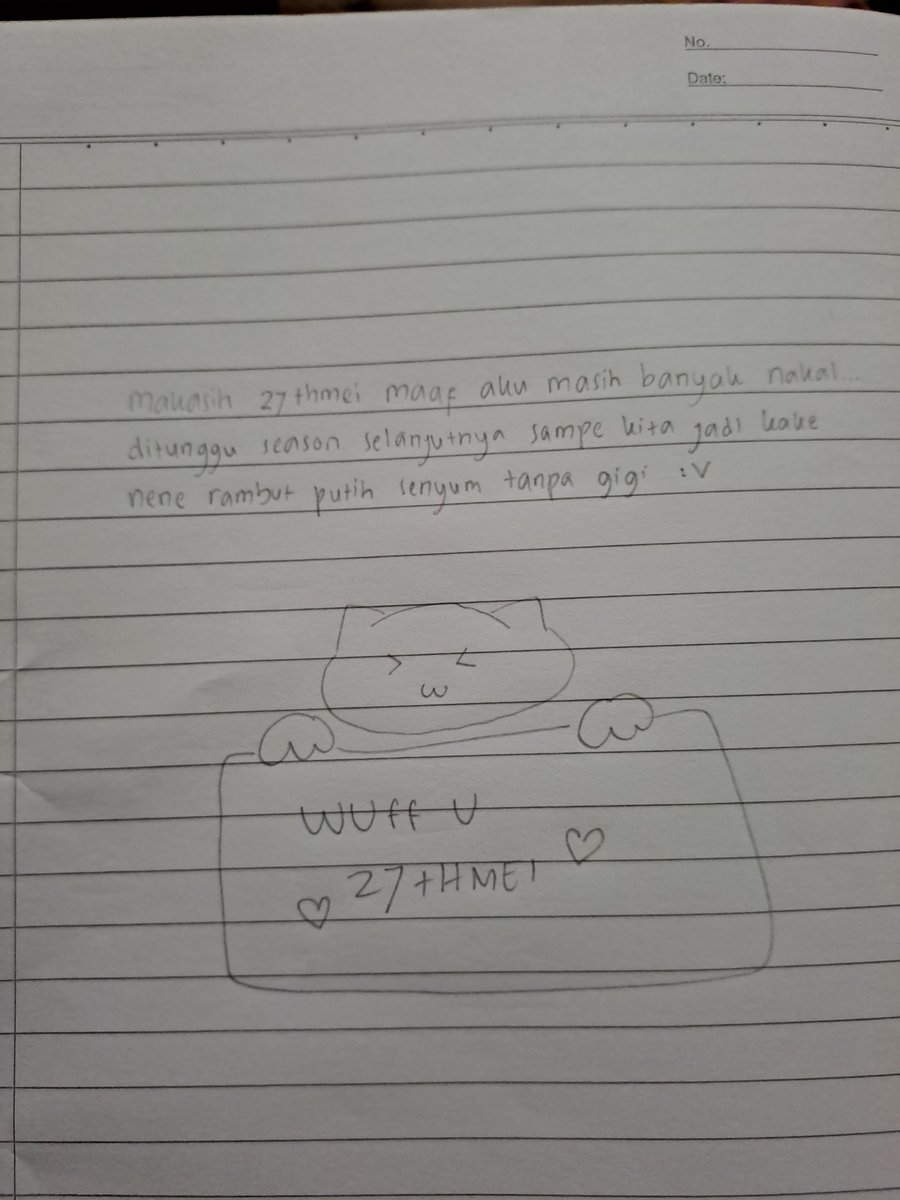 No.
Date:
makasih 27thmei maaf aku masih banyak nakal...
ditunggu season selanjutnya sampe kita jadi kake
nene rambut putih senyum tanpa gigi :V
WUff U
27tHMEI